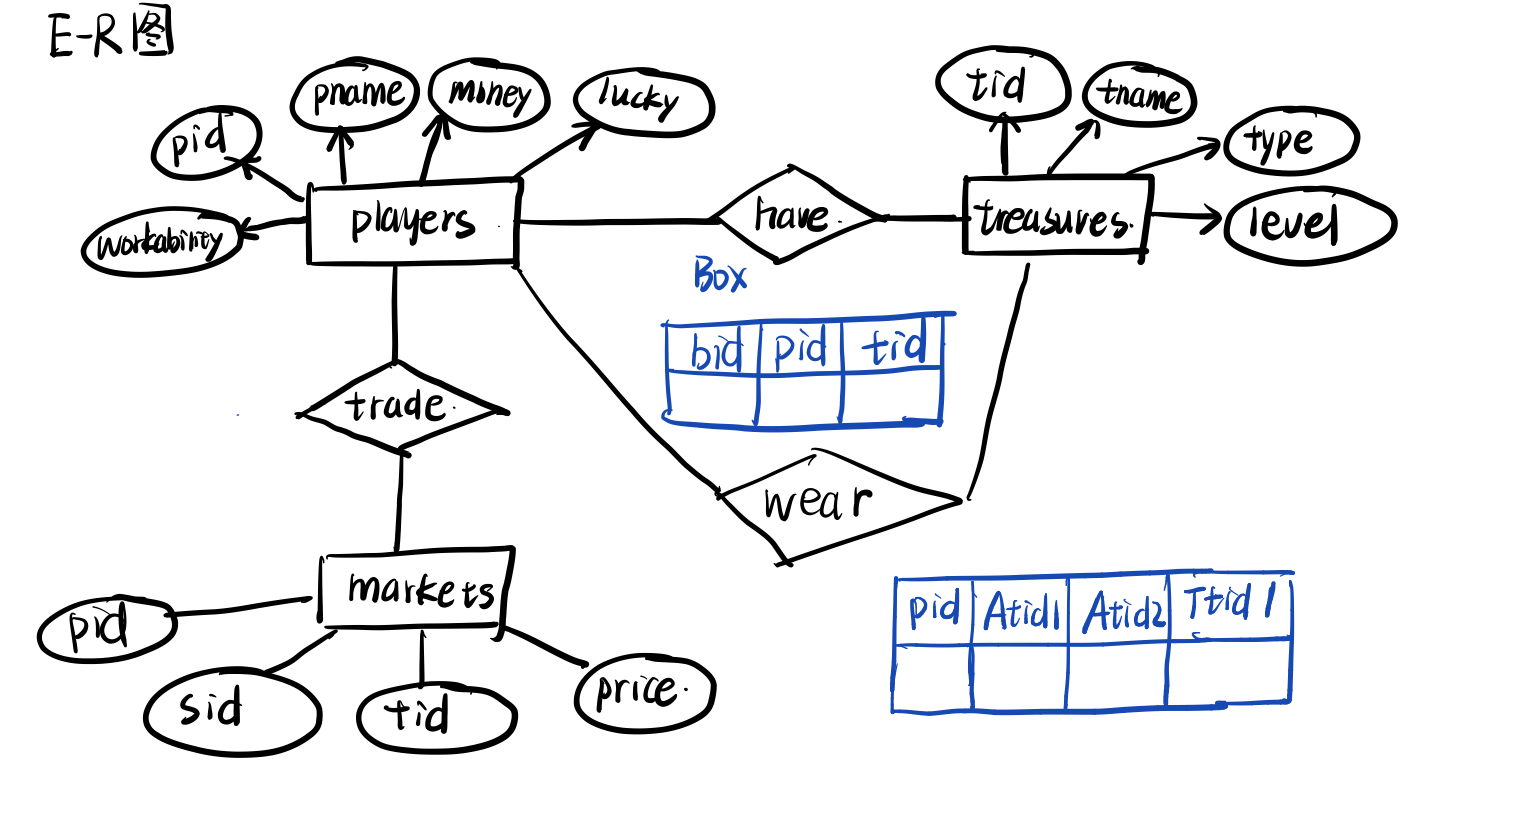 E-R图
pid
pname
money
lucky
workability
players
have
tid
tname
type
level
treasures
Box
bid pid tid
trade
wear
markets
pid
sid
tid
price
pid Atid1 Atid2 Ttid1